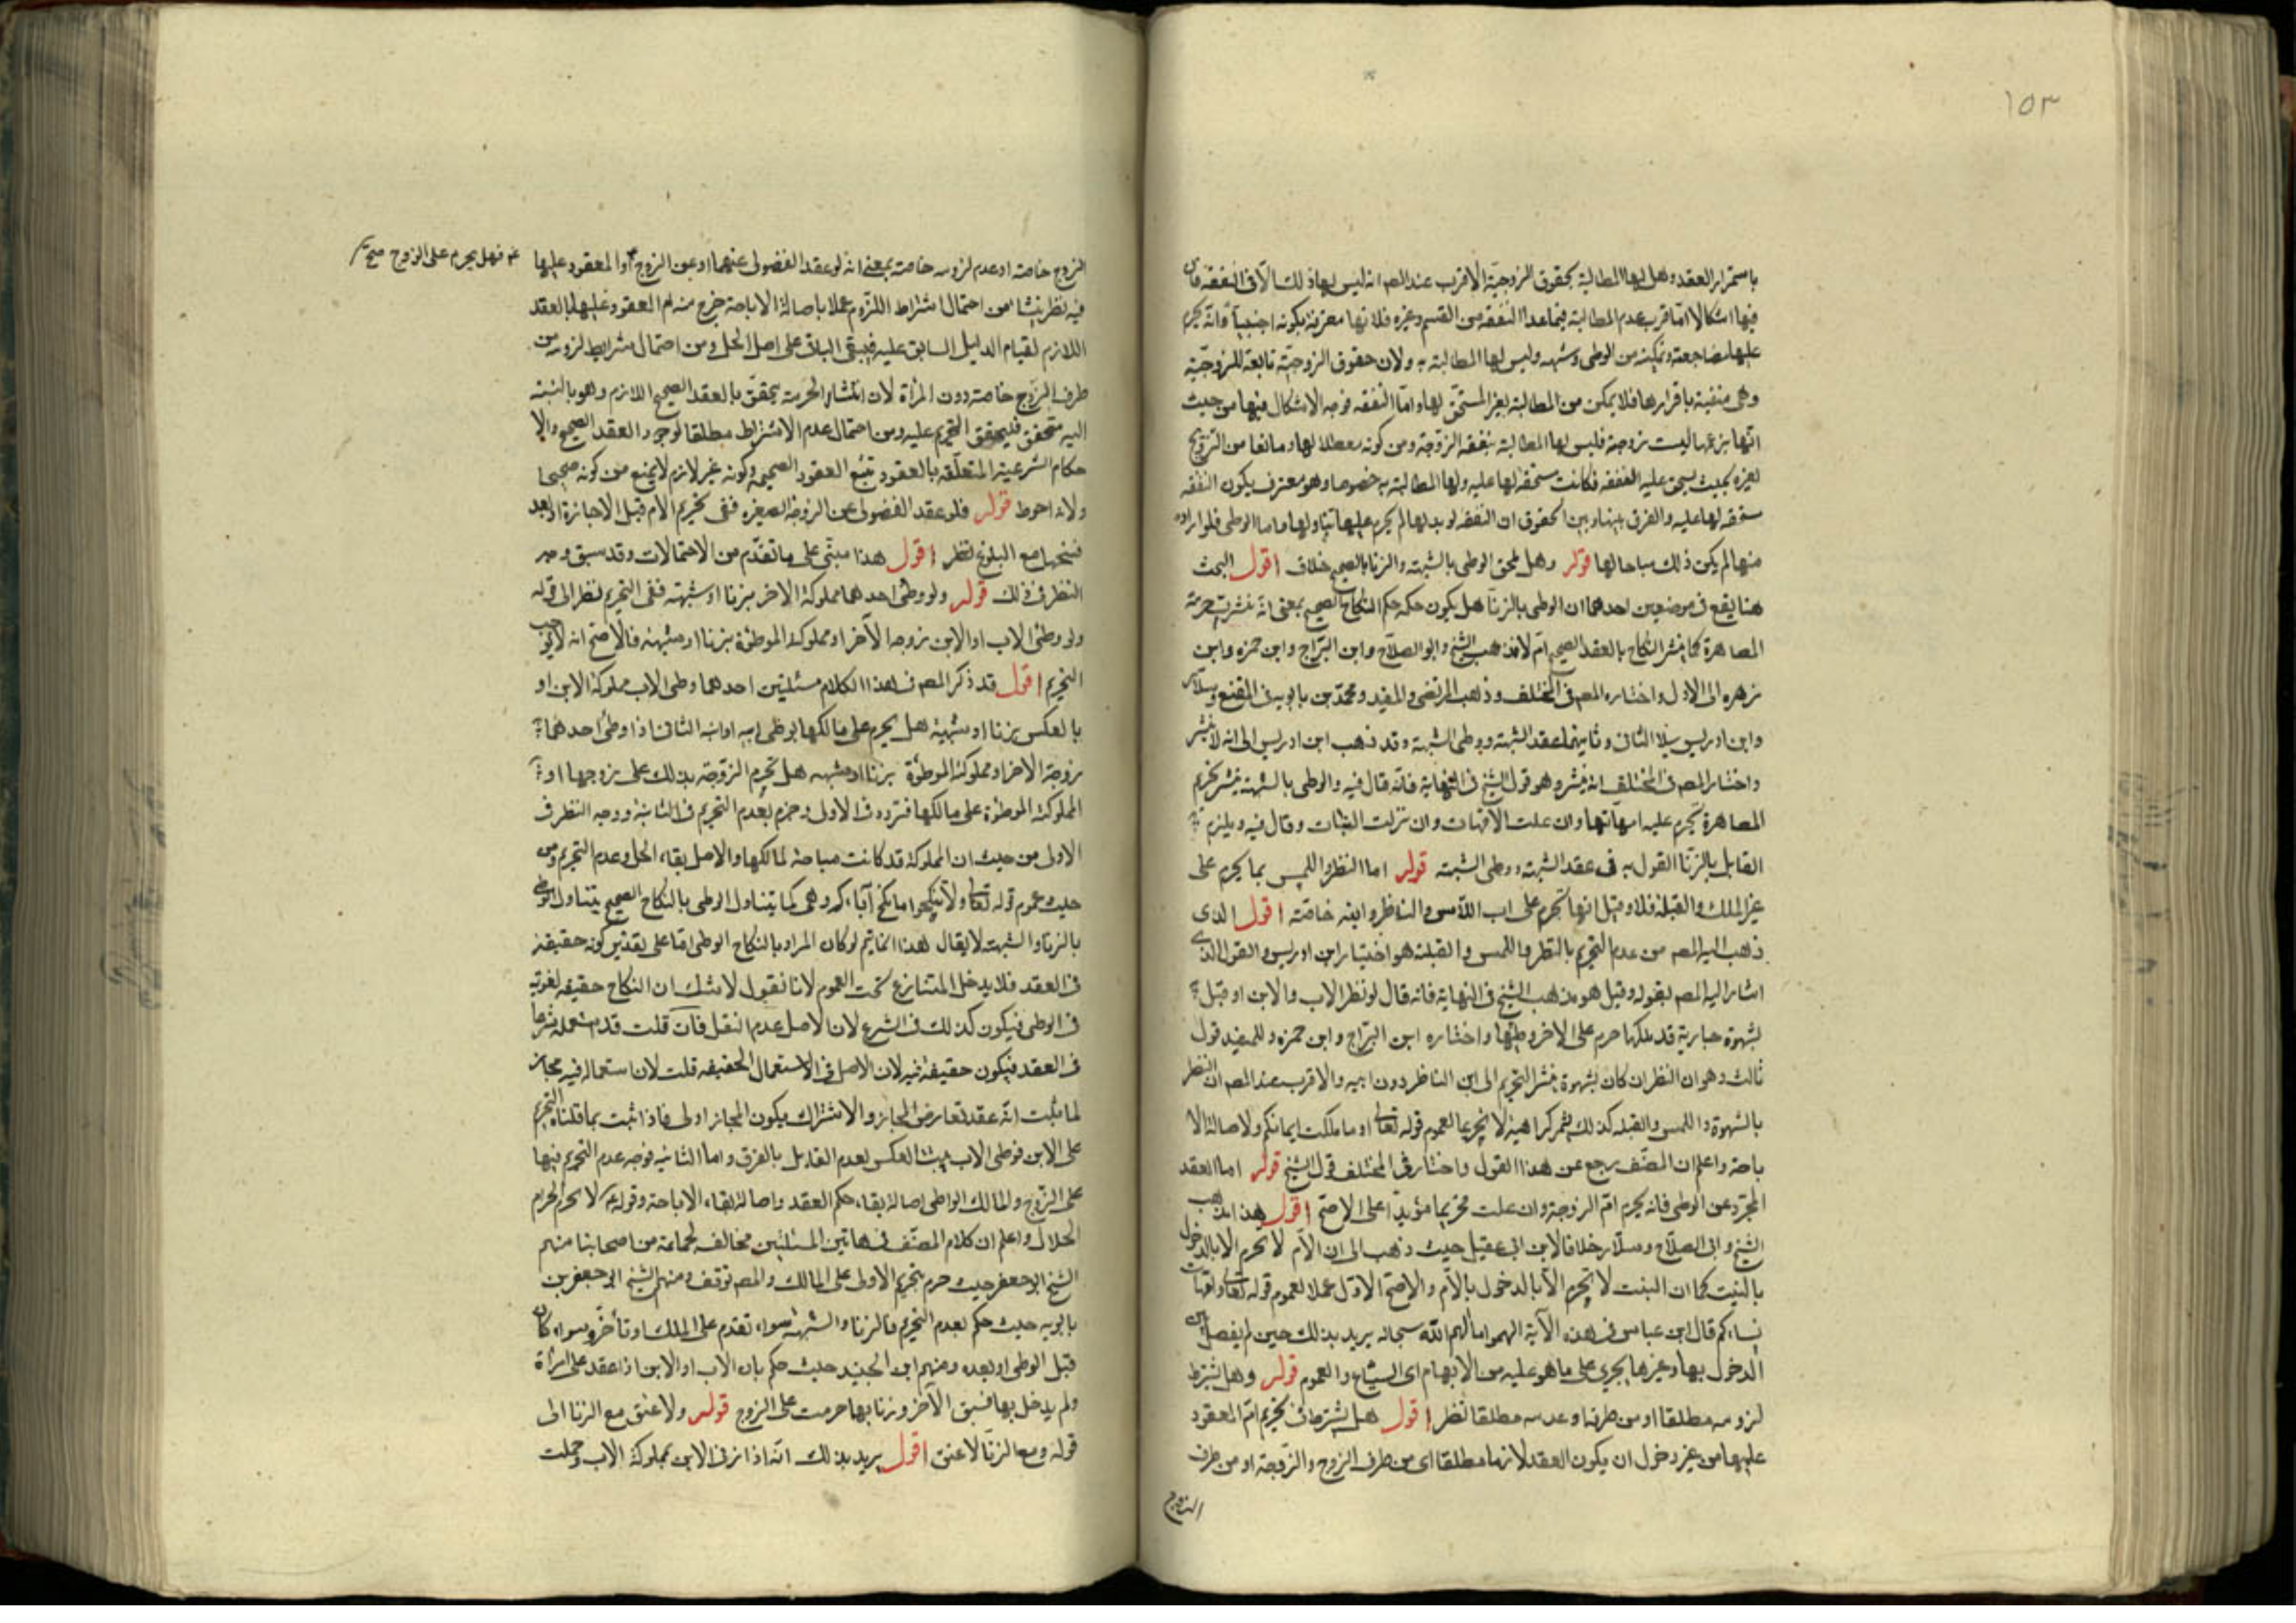 ١٥٣
باستمرار العقد وهل لها المطالبة بحقوق الزوجيّة الاقرب عند المص انه ليس لها ذلك الّا فى النفقه فان
فيها اشكالا امّا قرب عدم المطالبة فيما عدا النفقه من القسم وغيره فلانها معترفة بكونه اجنبيّاً وانّه يحرم
عليها مضاجعته وتمكينه من الوطى وشبهه وليس لها المطالبة به ولان حقوق الزوجيّة تابعة للزوجيّة
وهى منفية باقرارها فلا يمكن من المطالبة بغير المستحق لها وامّا النفقه فوجه الاشكال فيها من حيث
انّها بزعمها ليست بزوجة فليس لها المطالبة بنفقه الزوّجة ومن كونه معطلا لها ومانعا من التزويج
لغيره بحيث يستحق عليه النفقه فكانت مستحقه لها عليه ولها المطالبة به خصوصا وهو معترف بكون النفقه
مستحقه لها عليه والفرق بينها وبين الحقوق ان النفقه لو بذلها لم يحرم عليها تناولها واما الوطى فلو اراده
منها لم يكن ذلك مباحا لها قوله وهل يلحق الوطى بالشبهة والزنا بالصحيح خلاف اقول البحث
هنا يقع فى موضعين احدهما ان الوطى بالزنا هل يكون حكمه حكم النكاح الصحيح بمعنى انّه ينشر به حرمة
المصاهرة كما ينشر النكاح بالعقد الصحيح ام لا فذهب الشيخ وابو الصلاح وابن البرّاج وابن حمزه وابن
زهره الى الاوّل واختاره المص فى المختلف وذهب المرتضى والمفيد ومحمّد بن بابويه فى المقنع وسلّار
وابن ادريس الى الثانى وثانيهما عقد الشبهة ووطى الشبهة وقد ذهب ابن ادريس الى انه لا ينشر
واختار المص فى المختلف انه ينشر وهو قول الشيخ فى النهاية فانّه قال فيه والوطى بالشبهة ينشر تحريم
المصاهرة يحرم عليه امهاتها وان علت الامّهات وان نزلت البنات وقال فيه ويلزم
القايل بالزنّا القول به فى عقد الشبهة ووطى الشبهة قوله اما النظر واللمس بما يحرم على
غير المالك والقبلة فلا وقيل انها تحرم على اب اللّامس والناظر وابنه خاصّة اقول الذى
ذهب اليه المص من عدم التحريم بالنظر واللمس والقبلة هو اختيار ابن ادريس والقول الذى
اشار اليه المص بقوله وقيل هو مذهب الشيخ فى النهاية فانه قال لو نظر الاب والابن او قبل
بشهوة جارية قد ملكها حرم على الاخر وطيها واختاره ابن البرّاج وابن حمزه وللمفيد قول
ثالث وهو ان النظر ان كان بشهوة ينشر التحريم الى ابن الناظر دون ابيه والاقرب عند المص ان النظر
بالشهوة واللمس والقبله كذلك يثمر كراهية لا تحريما لعموم قوله تعالى او ما ملكت ايمانكم ولاصالة الا
باحة واعلم ان المصنّف رجع عن هذا القول واختار فى المختلف قول الشيخ قوله اما العقد
المجرّد عن الوطى فانه يحرم امّ الزوجة وان علت تحريما مؤبداً على الاصحّ اقول هذا مذهب
الشيخ وابى الصلاح وسلّار خلافا لابن ابى عقيل حيث ذهب الى ان الامّ لا تحرم الا بالدخول
بالبنت كما ان البنت لا تحرم الّا بالدخول بالامّ والاصحّ الاوّل عملا لعموم قوله تعالى وامّهات
نساءكم قال ابن عباس فى هذه الآية ابهموا ما ابهم اللّه سبحانه يريد بذلك حين لم يفصل بين
الدخول بها وغيرها يجرى على ما هو عليه من الابهام اى الشياع والعموم قوله وهل يشترط
لزومه مطلقا او من طرفه او عدمه مطلقا نظر اقول هل يشترط فى تحريم امّ المعقود
عليها من غير دخول ان يكون العقد لازما مطلقا اى من طرف الزوج والزوجة او من طرف
الزوج
الزوج خاصة او عدم لزومه خاصة بمعنى انه لو عقد الفضولى عنهما او عن الزوج امّ المعقود عليها
فهل يحرم على الزوج صح
فيه نظر ينشا من احتمال اشتراط اللزوم عملا باصالة الاباحة خرج منه ام المعقود عليها بالعقد
اللازم لقيام الدليل السابق عليه فيبقى الباقى على اصل الحل ومن احتمال اشتراط لزومه من
طرف الزوج خاصة دون المرأة لان انتشار الحرمة يتحقق بالعقد الصحيح اللازم وهو بالنسبة
اليه متحقق فيتحقق التحريم عليه ومن احتمال عدم الاشتراط مطلقا لوجود العقد الصحيح والا
حكام الشرعية المتعلّقه بالعقود تتبع العقود الصحيحه وكونه غير لازم لا يمنع من كونه صحيحا
ولانه احوط قوله فلو عقد الفضولى عن الزوجة الصغيره ففى تحريم الام قبل الاجازة او بعد
فسخها مع البلوغ نظر اقول هذا مبنّى على ما تقدّم من الاحتمالات وقد سبق وجه
النظر فى ذلك قوله ولو وطئ احدهما مملوكة الاخر بزنا او شبهته ففى التحريم نظر الى قوله
ولو وطئ الاب او الابن زوجه الآخر او مملوكته الموطؤة بزنا او شبهة فالاصحّ انه لا يوجب
التحريم اقول قد ذكر المص فى هذا الكلام مسئلتين احدهما وطى الاب مملوكة الابن او
بالعكس بزنا او شبهة هل يحرم على مالكها بوطى ابيه او ابنه الثانى اذا وطئ احدهما
زوجة الاخر او مملوكته الموطؤة بزنا او شبهه هل تحرم الزوّجة بذلك على زوجها او
المملوكة الموطؤة على مالكها فتردد فى الاول وجزم بعدم التحريم فى الثانية ووجه النظر فى
الاولى من حيث ان المملوكة قد كانت مباحة لمالكها والاصل بقاء الحل وعدم التحريم ومن
حيث عموم قوله تعالى ولا تنكحوا ما نكح آباءكم وهى كما يتناول الوطى بالنكاح الصحيح يتناول الوطى
بالزنا والشبهة لا يقال هذا انما يتم لو كان المراد بالنكاح الوطى امّا على تقدير كونه حقيقة
فى العقد فلا يدخل المتنازع تحت العموم لانا نقول لا شك ان النكاح حقيقه لغوية
فى الوطى فيكون كذلك فى الشرع لان الاصل عدم النقل فان قلت قد استعمله شرعا
فى العقد فيكون حقيقة فيه لان الاصل فى الاستعمال الحقيقه قلت لان استعماله فيه مجاز
لما ثبت انّه عند تعارض المجاز والاشتراك يكون المجاز اولى فاذا ثبت بما قلناه التحريم
على الابن فوطى الاب يثبت العكس لعدم القايل بالفرق واما الثانيه فوجه عدم التحريم فيها
على الزوّج والمالك الواطى اصالة بقاء حكم العقد واصالة بقاء الاباحة وقوله ع لا يحرم الحرام
الحلال واعلم ان كلام المصنّف فى هاتين المسئلتين مخالف لجماعة من اصحابنا منهم
الشيخ ابو جعفر حيث جزم بتحريم الاولى على المالك والمص توقف ومنهم الشيخ ابو جعفر بن
بابويه حيث حكم بعدم التحريم بالزنا والشبهة سواء تقدم على الملك او تأخّر وسواء كان
قبل الوطى او بعده ومنهم ابن الجنيد حيث حكم بان الاب او الابن اذا عقد على امرأة
ولم يدخل بها فسبق الآخر وزنا بها حرمت على الزوج قوله ولا عتق مع الزنا الى
قوله ومع الزنّا لا عتق اقول يريد بذلك انّه اذا زنى الابن بمملوكة الاب وحملت